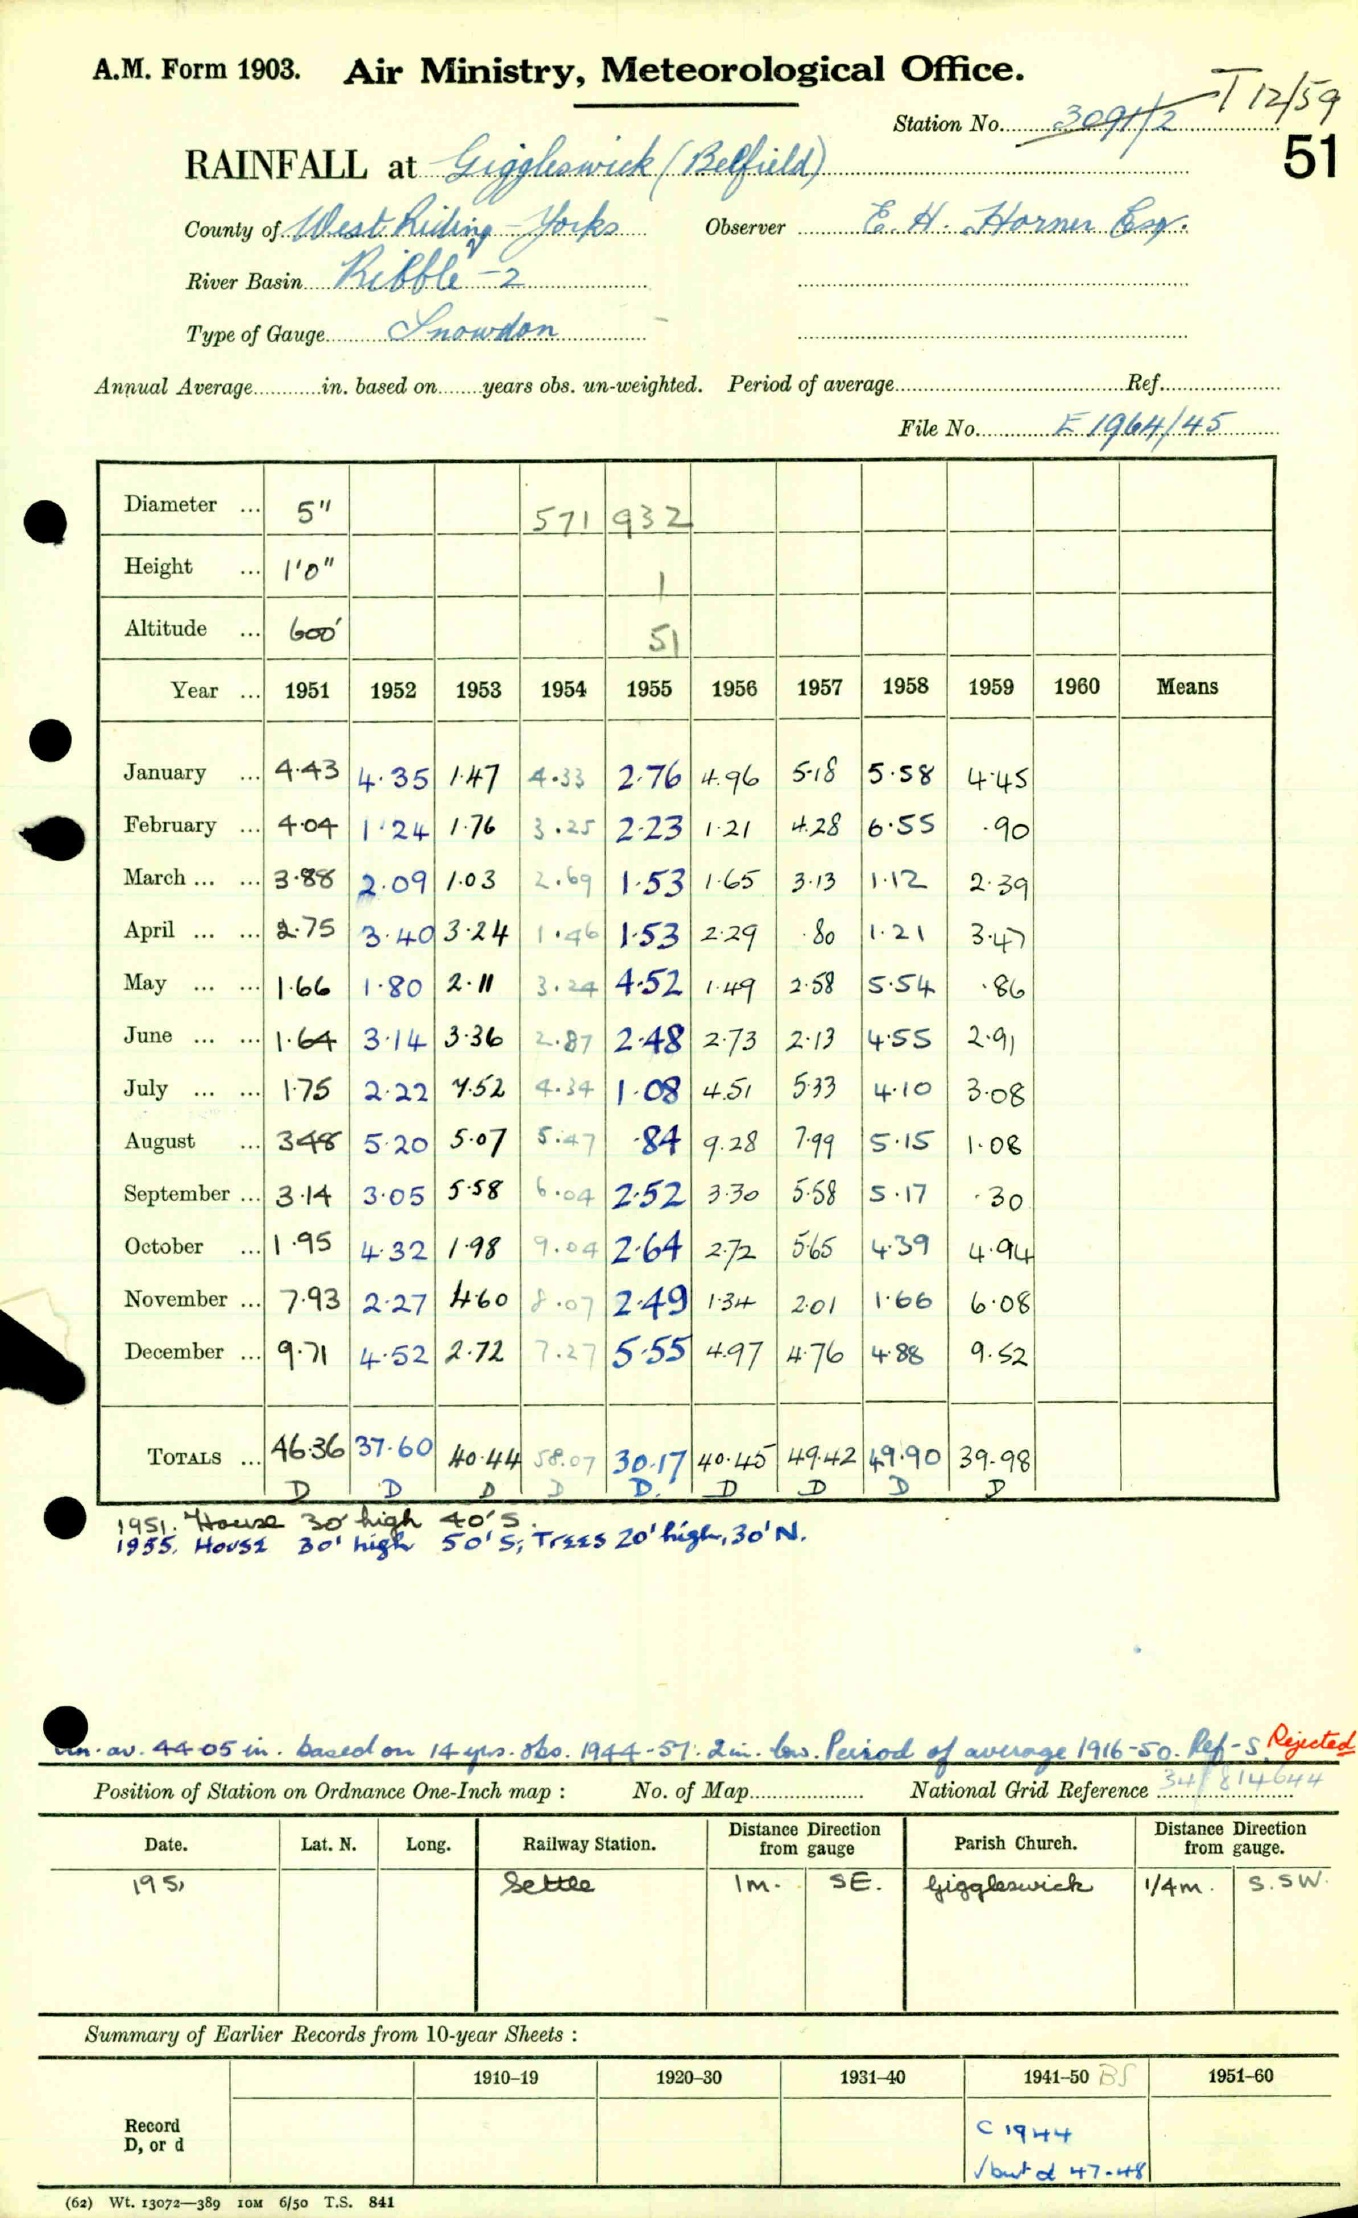 A.M. Form 1903. Air Ministry, Meteorological Office.
T 12/59
Station No. 3091/2
51
RAINFALL at Giggleswick (Belfield)
County of West Riding - Yorks Observer E. H. Horner Esq.
River Basin Ribble - 2
Type of Gauge Snowdon
Annual Average in. based on years obs. un-weighted. Period of average Ref.
File No. E 1964/45
Diameter ... 5" 571 932
Height ... 1'0" 1
Altitude ... 600' 51
Year ... 1951 1952 1953 1954 1955 1956 1957 1958 1959 1960 Means
January ... 4.43 4.35 1.47 4.33 2.76 4.96 5.18 5.58 4.45
February ... 4.04 1.24 1.76 3.25 2.23 1.21 4.28 6.55 .90
March ... ... 3.88 2.09 1.03 2.69 1.53 1.65 3.13 1.12 2.39
April ... ... 2.75 3.40 3.24 1.46 1.53 2.29 .80 1.21 3.47
May ... ... 1.66 1.80 2.11 3.24 4.52 1.49 2.58 5.54 .86
June ... ... 1.64 3.14 3.36 2.87 2.48 2.73 2.13 4.55 2.91
July ... ... 1.75 2.22 7.52 4.34 1.08 4.51 5.33 4.10 3.08
August ... 3.48 5.20 5.07 5.47 .84 9.28 7.99 5.15 1.08
September ... 3.14 3.05 5.58 6.04 2.52 3.30 5.58 5.17 .30
October ... 1.95 4.32 1.98 9.04 2.64 2.72 5.65 4.39 4.94
November ... 7.93 2.27 4.60 8.07 2.49 1.34 2.01 1.66 6.08
December ... 9.71 4.52 2.72 7.27 5.55 4.97 4.76 4.88 9.52
TOTALS ... 46.36 37.60 40.44 58.07 30.17 40.45 49.42 49.90 39.98
D D D D D. D D D D
1951. House 30' high 40' S.
1955. House 30' high 50' S; Trees 20' high, 30' N.
An. av. 44.05 in. based on 14 yrs. obs. 1944-57. 2 in. low. Period of average 1916-50. Ref - S. Rejected
Position of Station on Ordnance One-Inch map : No. of Map National Grid Reference 34/814644
Date. Lat. N. Long. Railway Station. Distance Direction from gauge Parish Church. Distance Direction from gauge.
1951 Settle 1m. SE. Giggleswick 1/4m. S.SW.
Summary of Earlier Records from 10-year Sheets :
1910–19 1920–30 1931–40 1941–50 BS 1951–60
Record
D, or d
C 1944
√ but d 47-48
(62) Wt. 13072—389 10M 6/50 T.S. 841